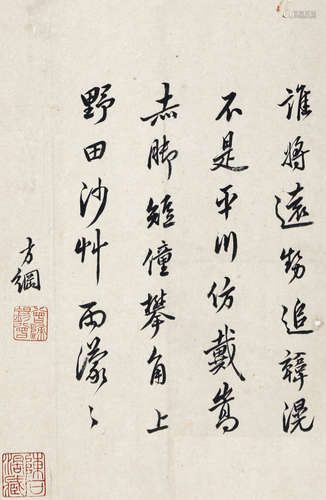 誰將遠勢追韓滉
不是平川仿戴嵩
赤脚短僮攀角上
野田沙艸雨濛〻
方綱